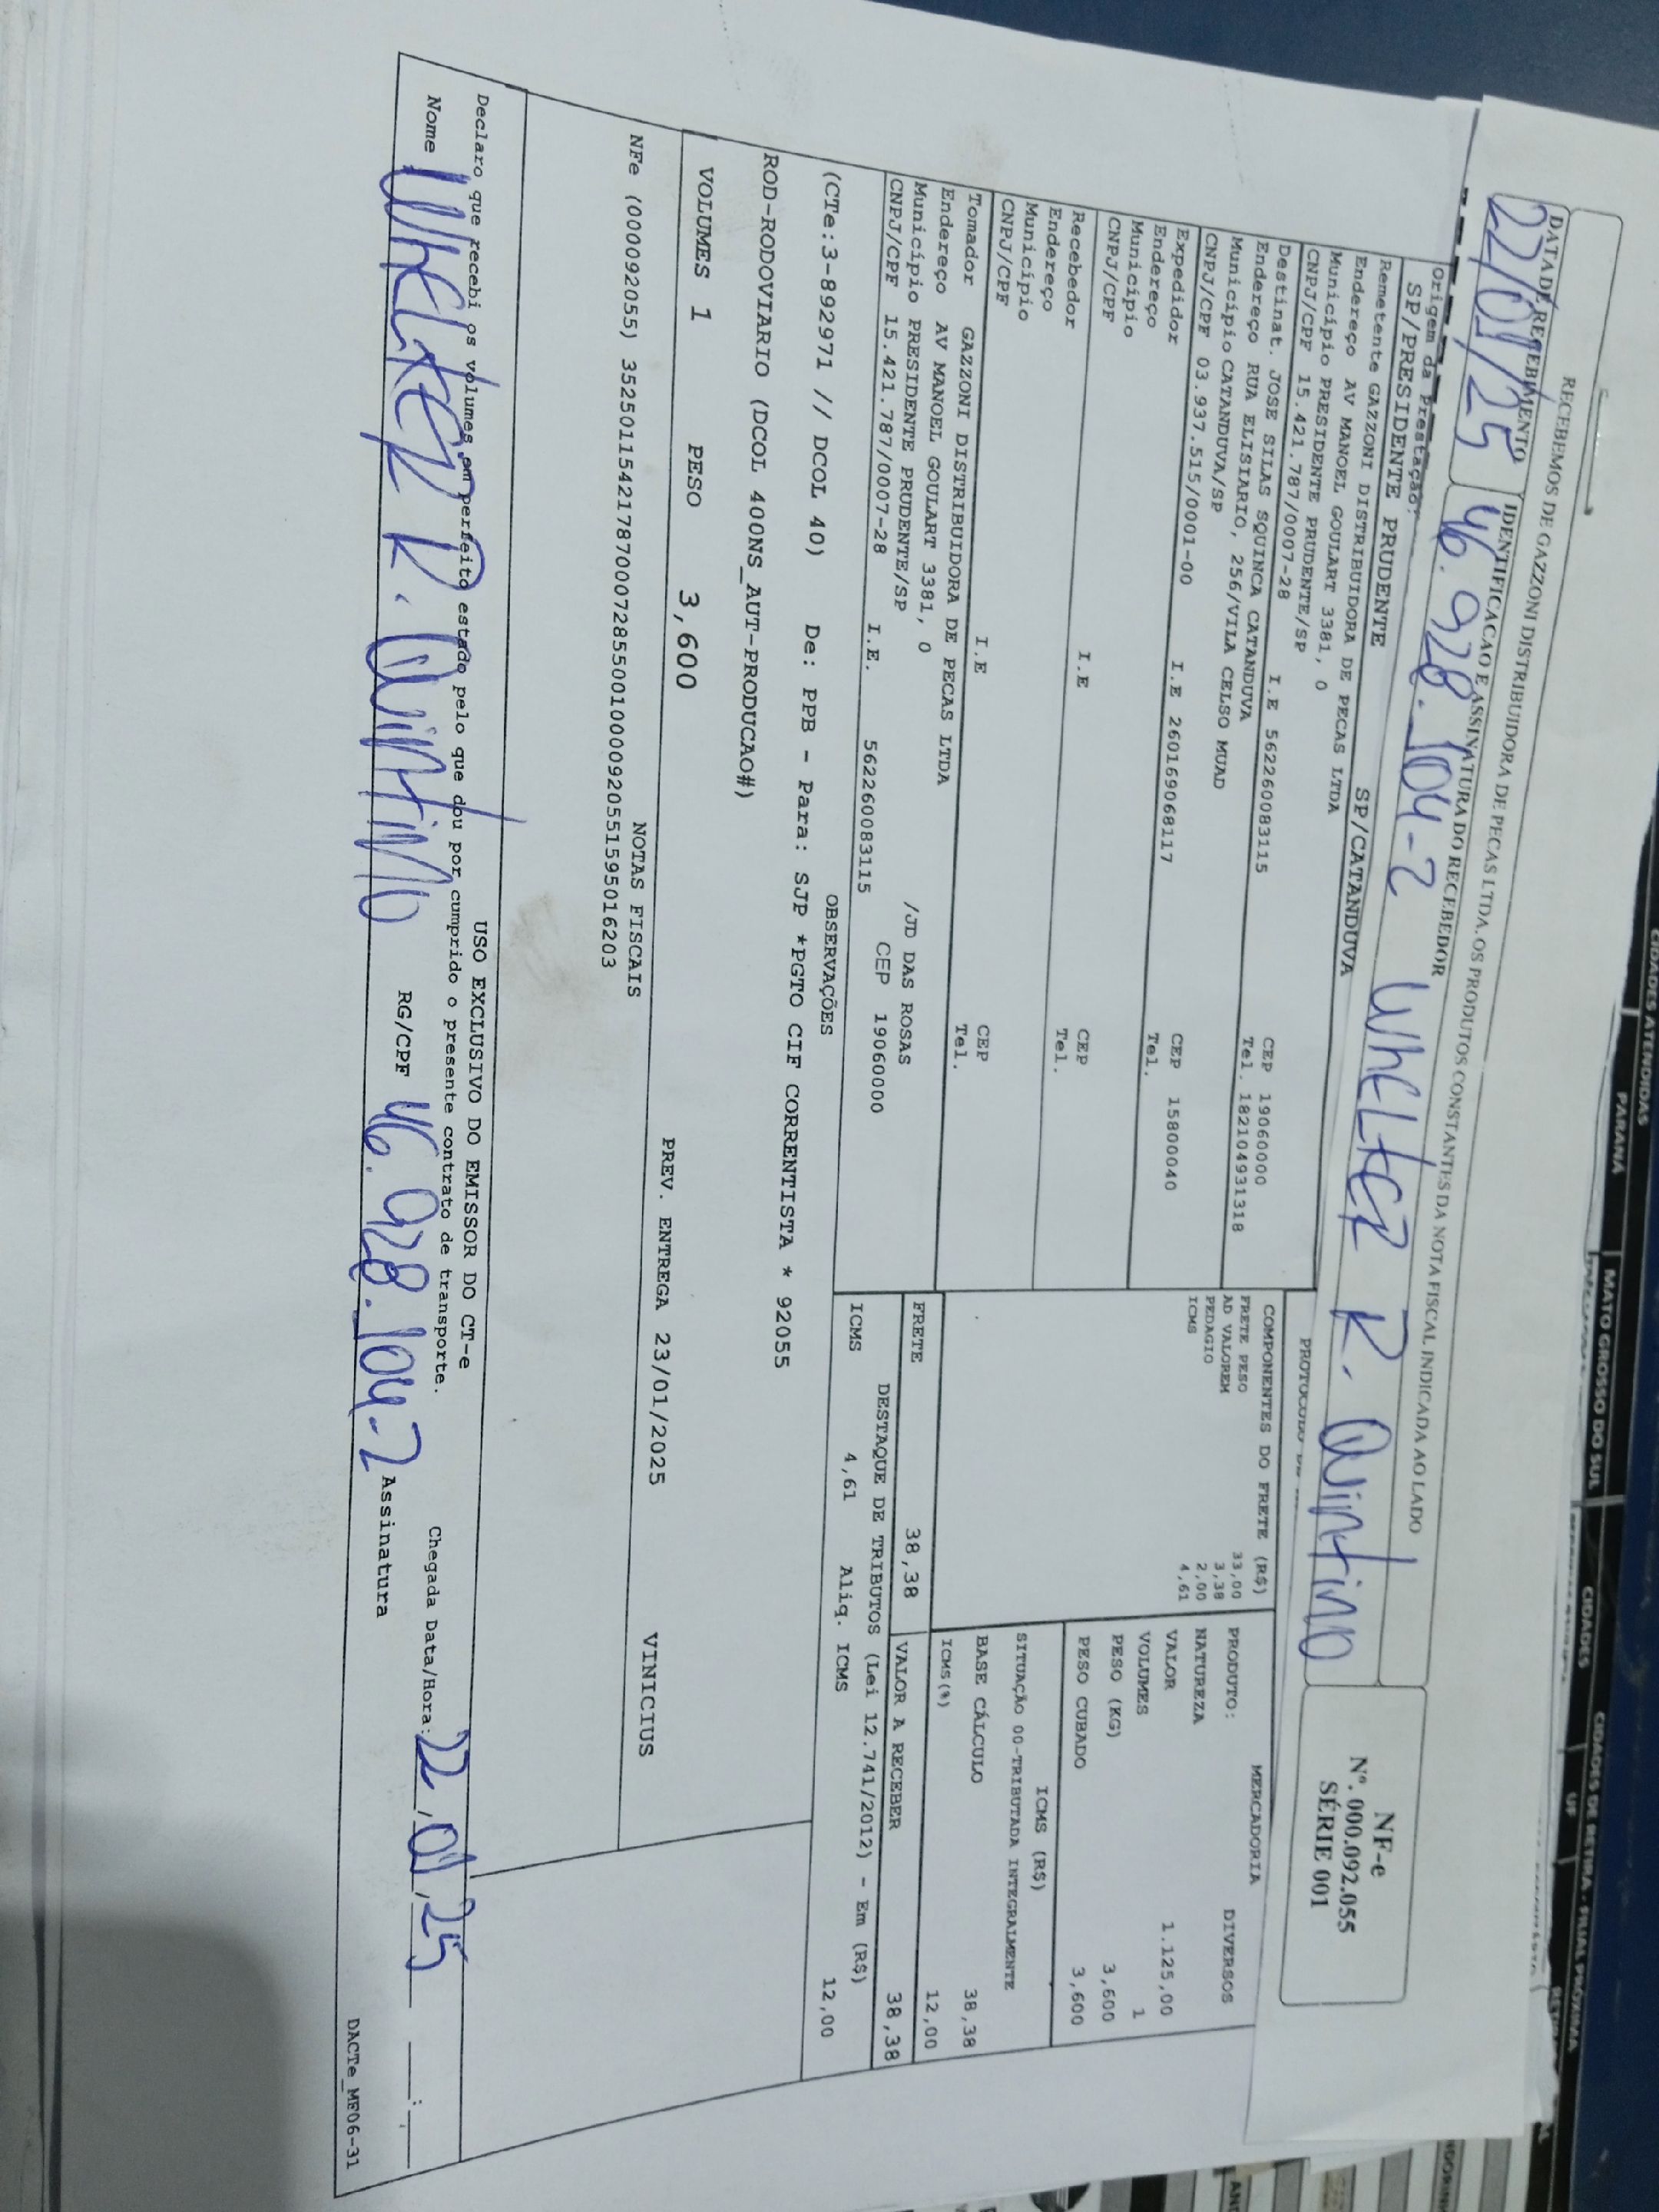 CIDADES ATENDIDAS
PARANÁ
MATO GROSSO DO SUL
CIDADES
CIDADES DE RETIRA - FILIAL PRÓXIMA
UF
RECEBEMOS DE GAZZONI DISTRIBUIDORA DE PECAS LTDA. OS PRODUTOS CONSTANTES DA NOTA FISCAL INDICADA AO LADO
DATA DE RECEBIMENTO
22/01/25
IDENTIFICACAO E ASSINATURA DO RECEBEDOR
46.928.104-2 WhELtER R. Quintino
NF-e
Nº. 000.092.055
SÉRIE 001
Origem da Prestação:
SP/PRESIDENTE PRUDENTE SP/CATANDUVA
Remetente GAZZONI DISTRIBUIDORA DE PECAS LTDA
Endereço AV MANOEL GOULART 3381, 0
Município PRESIDENTE PRUDENTE/SP CEP 19060000
CNPJ/CPF 15.421.787/0007-28 I.E 562260083115 Tel. 182104931318
Destinat. JOSE SILAS SQUINCA CATANDUVA
Endereço RUA ELISIARIO, 256/VILA CELSO MUAD
Município CATANDUVA/SP CEP 15800040
CNPJ/CPF 03.937.515/0001-00 I.E 260169068117 Tel.
Expedidor
Endereço
Município CEP
CNPJ/CPF I.E Tel.
Recebedor
Endereço
Município CEP
CNPJ/CPF I.E Tel.
Tomador GAZZONI DISTRIBUIDORA DE PECAS LTDA
Endereço AV MANOEL GOULART 3381, 0 /JD DAS ROSAS
Município PRESIDENTE PRUDENTE/SP CEP 19060000
CNPJ/CPF 15.421.787/0007-28 I.E. 562260083115
PROTOCOLO
COMPONENTES DO FRETE (R$)
FRETE PESO 33,00
AD VALOREM 3,38
PEDAGIO 2,00
ICMS 4,61
MERCADORIA
PRODUTO: DIVERSOS
NATUREZA
VALOR 1.125,00
VOLUMES 1
PESO (KG) 3,600
PESO CUBADO 3,600
ICMS (R$)
SITUAÇÃO 00-TRIBUTADA INTEGRALMENTE
BASE CÁLCULO 38,38
ICMS(%) 12,00
FRETE 38,38
VALOR A RECEBER 38,38
DESTAQUE DE TRIBUTOS (Lei 12.741/2012) - Em (R$)
ICMS 4,61 Aliq. ICMS 12,00
OBSERVAÇÕES
(CTe:3-892971 // DCOL 40) De: PPB - Para: SJP *PGTO CIF CORRENTISTA * 92055
ROD-RODOVIARIO (DCOL 400NS_AUT-PRODUCAO#)
VOLUMES 1 PESO 3,600 PREV. ENTREGA 23/01/2025 VINICIUS
NOTAS FISCAIS
NFe (000092055) 35250115421787000728550010000920551595016203
USO EXCLUSIVO DO EMISSOR DO CT-e
Declaro que recebi os volumes em perfeito estado pelo que dou por cumprido o presente contrato de transporte.
Chegada Data/Hora: 22/01/25 __:__
Nome WhELtER R. Quintino RG/CPF 46.928.104-2 Assinatura
DACTe_MF06-31